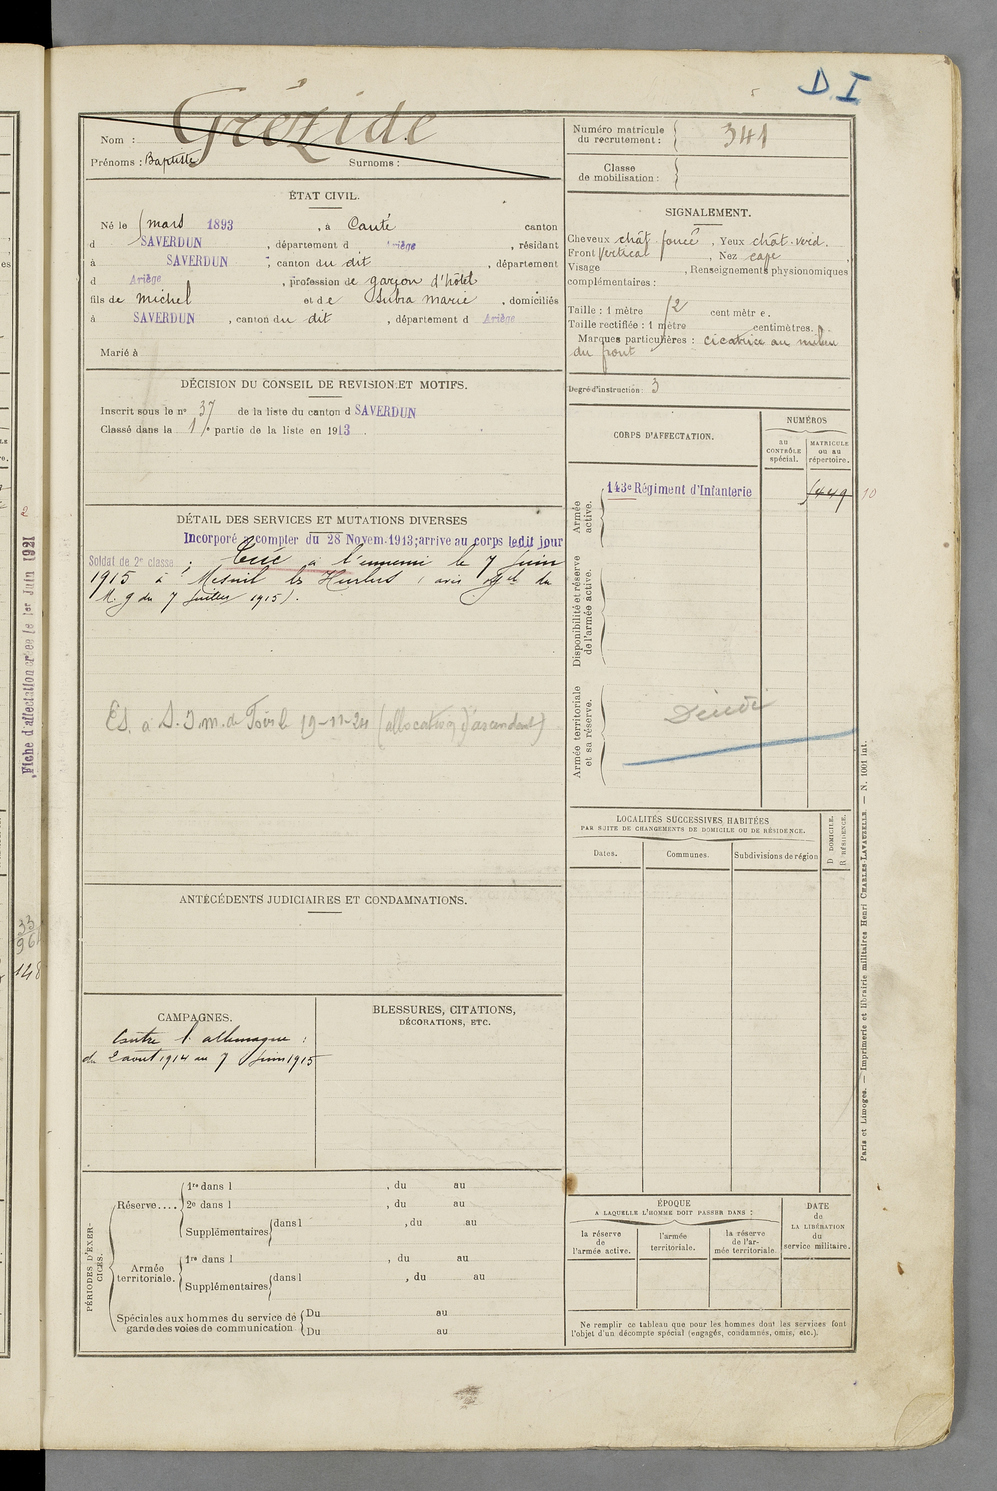 D.I
Grézide
Nom :
Prénoms : Baptiste Surnoms :
Numéro matricule du recrutement : 341
Classe de mobilisation :
ÉTAT CIVIL.
Né le mars 1893, à Canté canton
d SAVERDUN, département d Ariège, résidant
à SAVERDUN, canton du dit, département
d Ariège, profession de garçon d'hôtel
fils de Michel et de Subra Marie, domiciliés
à SAVERDUN, canton du dit, département d Ariège
Marié à
SIGNALEMENT.
Cheveux chât foncé, Yeux chât. verd.
Front Vertical, Nez
Visage , Renseignements physionomiques
complémentaires :
Taille : 1 mètre 72 centimètre.
Taille rectifiée : 1 mètre centimètres.
Marques particulières : cicatrice au milieu
du front
Degré d'instruction : 3
DÉCISION DU CONSEIL DE REVISION ET MOTIFS.
Inscrit sous le nº 37 de la liste du canton d SAVERDUN
Classé dans la 1re partie de la liste en 1913.
CORPS D'AFFECTATION.
NUMÉROS
au CONTRÔLE spécial.
MATRICULE ou au répertoire.
Armée active.
143e Régiment d'Infanterie
10
Disponibilité et réserve de l'armée active.
Armée territoriale et sa réserve.
Décédé
DÉTAIL DES SERVICES ET MUTATIONS DIVERSES
Incorporé à compter du 28 Novem. 1913; arrive au corps ledit jour
Soldat de 2e classe. ; Tué à l'ennemi le 7 Juin
1915 à Mesnil les Hurlus (avis offel du
M. g du 7 Juillet 1915).
19-11-24 (allocation d'ascendant)
Fiche d'affectation créée le 1er Juin 1921
2
33
961
148
LOCALITÉS SUCCESSIVES HABITÉES
PAR SUITE DE CHANGEMENTS DE DOMICILE OU DE RÉSIDENCE.
Dates.
Communes.
Subdivisions de région
D DOMICILE.
R RÉSIDENCE.
ANTÉCÉDENTS JUDICIAIRES ET CONDAMNATIONS.
CAMPAGNES.
Contre l'allemagne :
du 2 août 1914 au 7 Juin 1915
BLESSURES, CITATIONS,
DÉCORATIONS, ETC.
PÉRIODES D'EXERCICES.
Réserve....
1re dans l , du au
2e dans l , du au
Supplémentaires dans l , du au
Armée territoriale.
1re dans l , du au
Supplémentaires dans l , du au
Spéciales aux hommes du service de
garde des voies de communication
Du au
Du au
ÉPOQUE
A LAQUELLE L'HOMME DOIT PASSER DANS :
la réserve de l'armée active.
l'armée territoriale.
la réserve de l'armée territoriale.
DATE de LA LIBÉRATION du service militaire.
Ne remplir ce tableau que pour les hommes dont les services font
l'objet d'un décompte spécial (engagés, condamnés, omis, etc.).
Paris et Limoges. — Imprimerie et librairie militaires Henri CHARLES-LAVAUZELLE. — N. 1001 int.